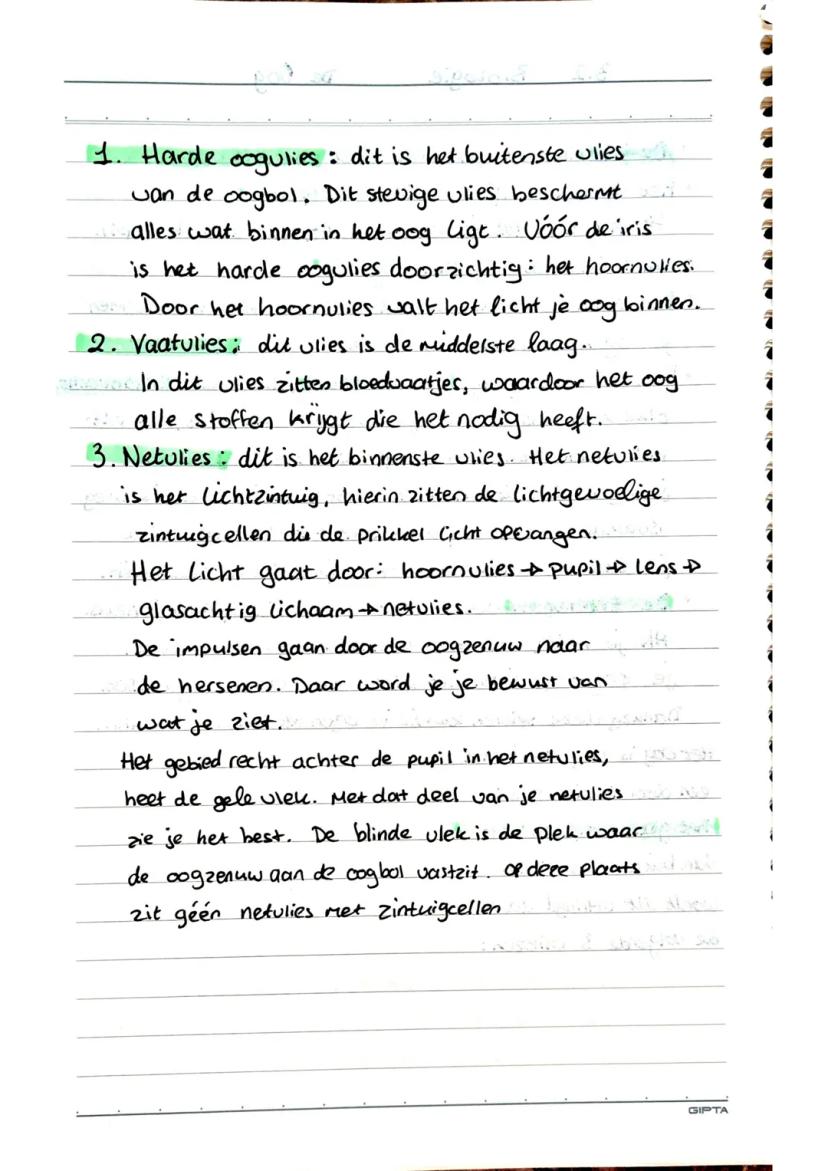 1. Harde oogvlies: dit is het buitenste vlies
van de oogbol. Dit stevige vlies beschermt
alles wat binnen in het oog ligt. Vóór de iris
is het harde oogvlies doorzichtig: het hoornvlies.
Door het hoornvlies valt het licht je oog binnen.
2. Vaatvlies: dit vlies is de middelste laag.
In dit vlies zitten bloedvaatjes, waardoor het oog
alle stoffen krijgt die het nodig heeft.
3. Netvlies: dit is het binnenste vlies. Het netvlies
is het lichtzintuig, hierin zitten de lichtgevoelige
zintuigcellen die de prikkel licht opvangen.
Het licht gaat door: hoornvlies → pupil → lens →
glasachtig lichaam → netvlies.
De impulsen gaan door de oogzenuw naar
de hersenen. Daar word je je bewust van
wat je ziet.
Het gebied recht achter de pupil in het netvlies,
heet de gele vlek. Met dat deel van je netvlies
zie je het best. De blinde vlek is de plek waar
de oogzenuw aan de oogbol vastzit. Op deze plaats
zit géén netvlies met zintuigcellen
GIPTA